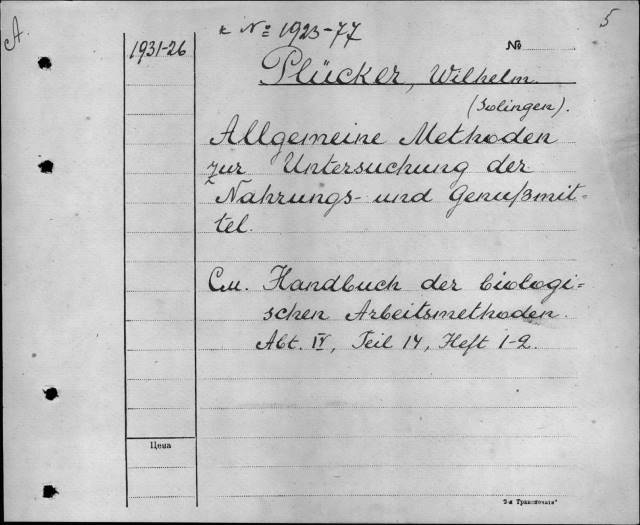 A.
к № 1923-77
5
1931-26
№
Plücker, Wilhelm.
(Solingen).
Allgemeine Methoden
zur Untersuchung der
Nahrungs- und Genußmit-
tel.
См. Handbuch der biologi-
schen Arbeitsmethoden.
Abt. IV, Teil 14, Heft 1-2.
Цена